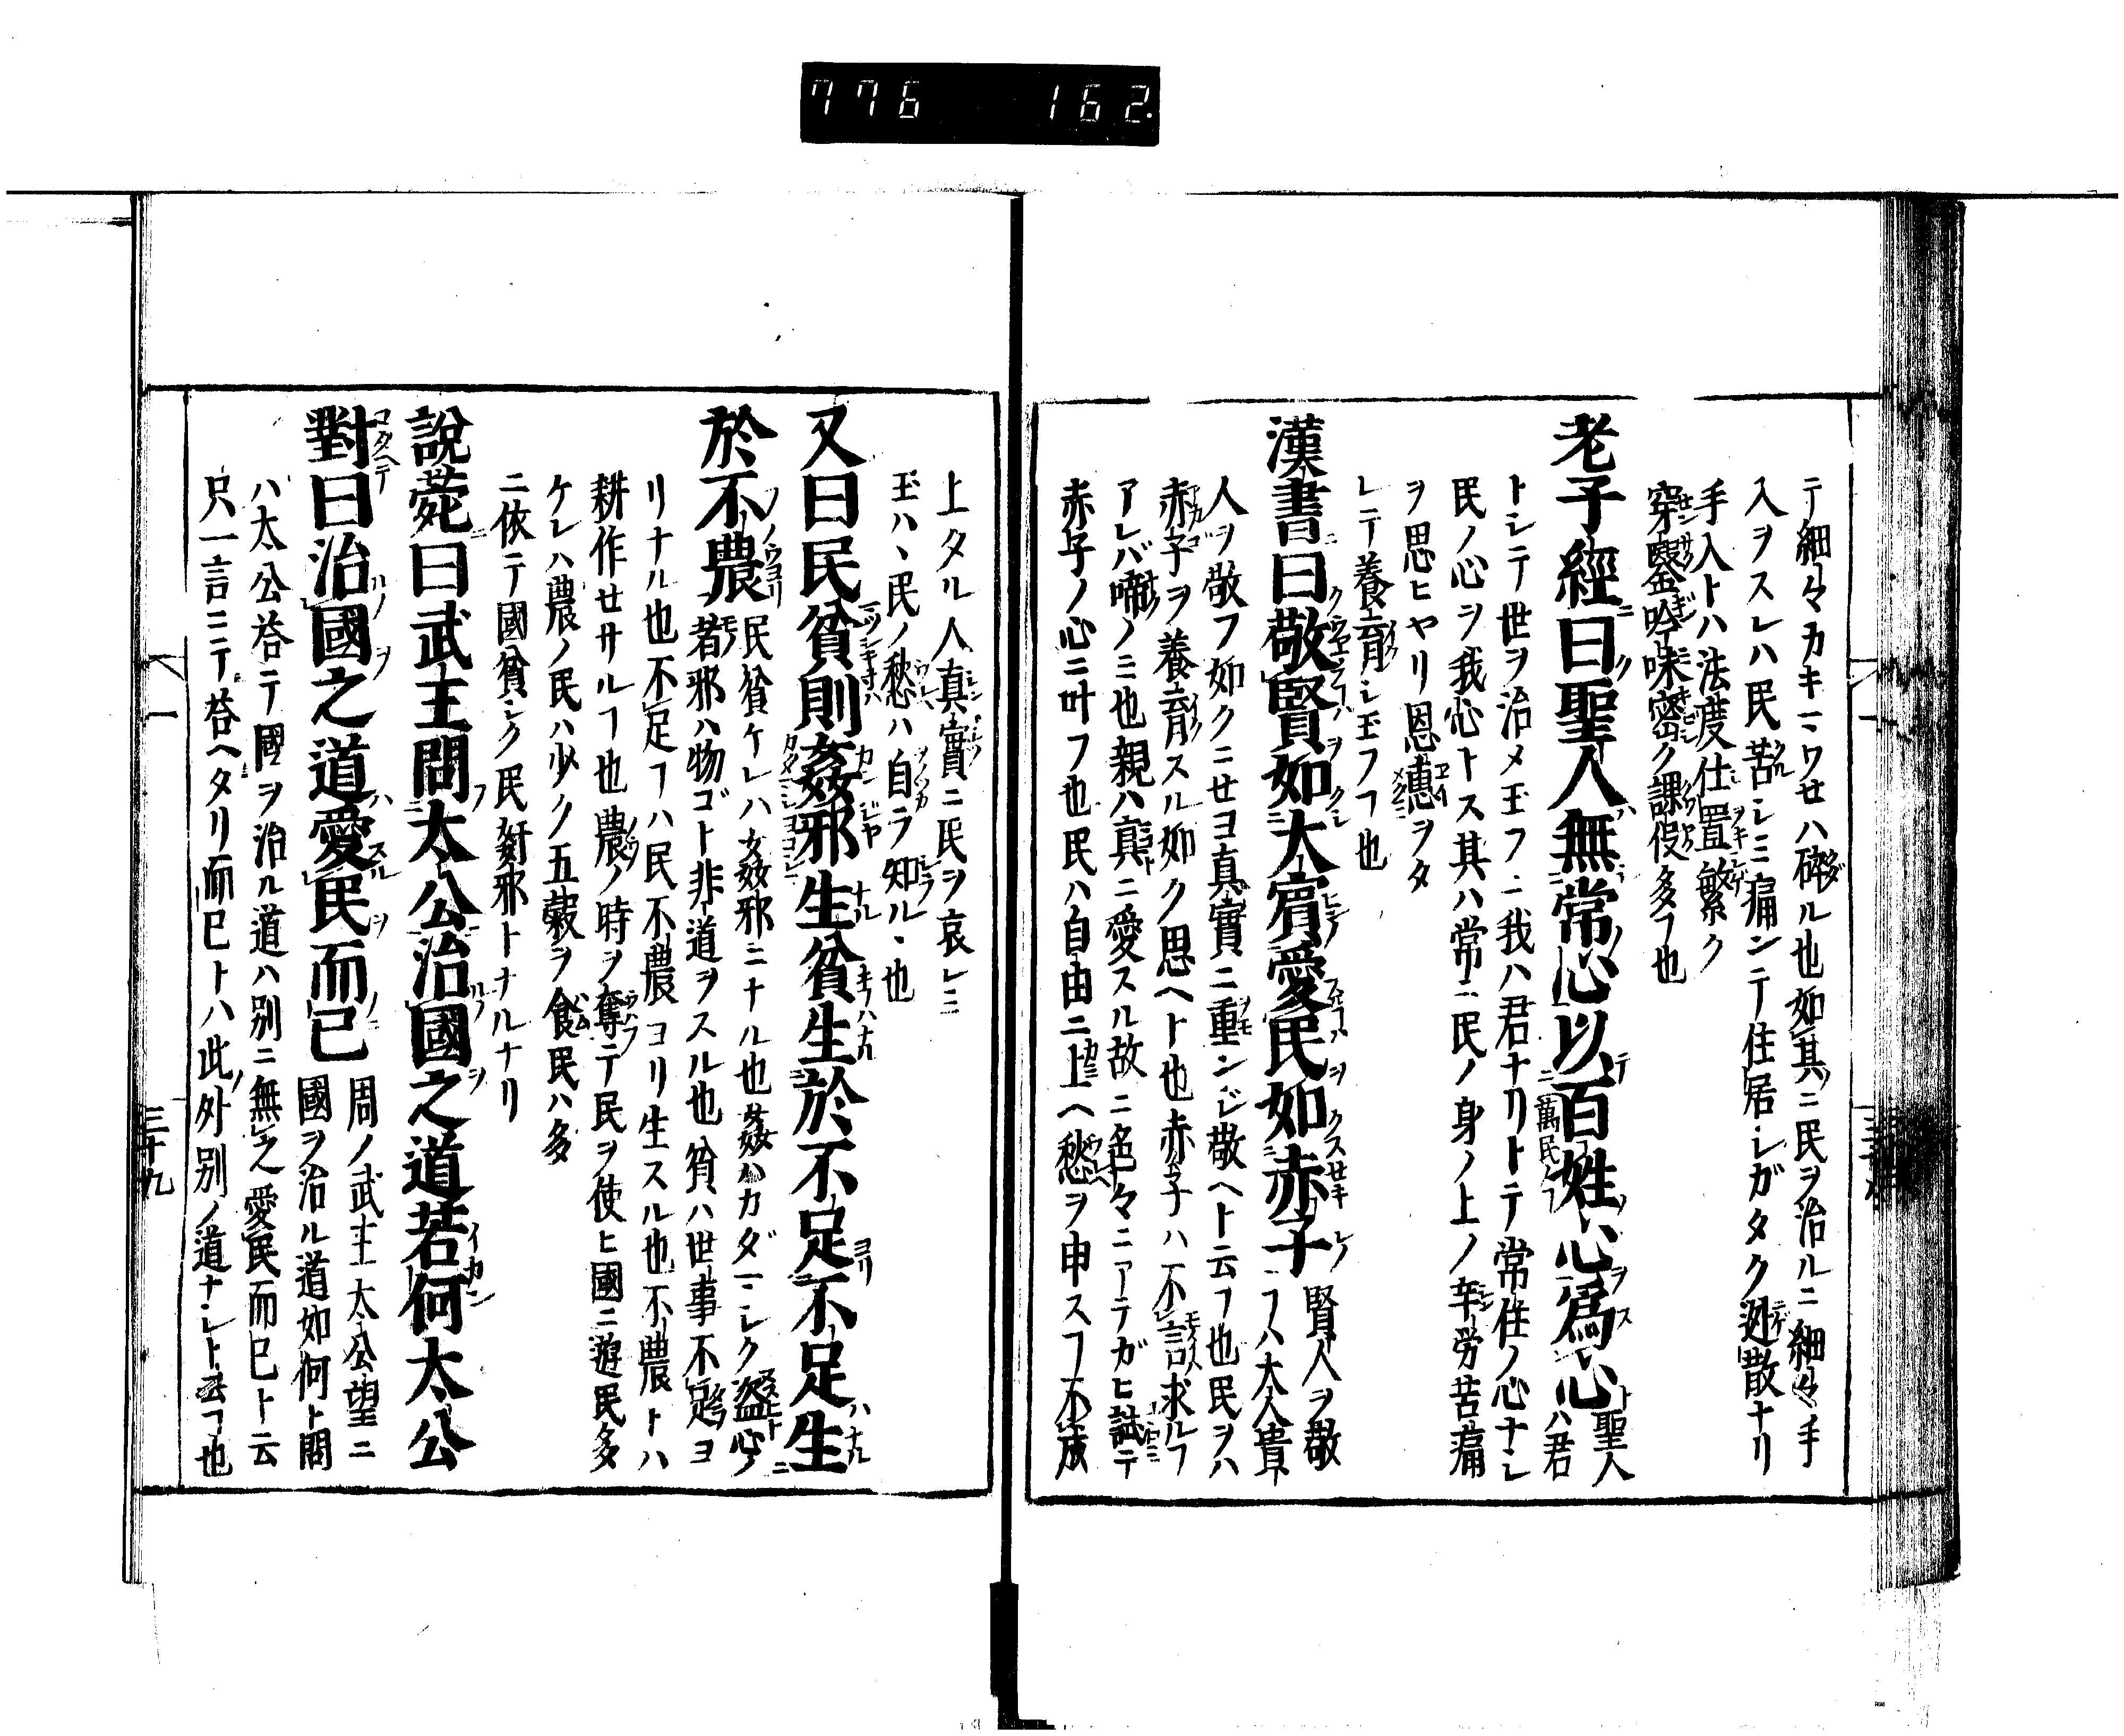 776 162
テ細々カキマワセハ砕ル也如其ニ民ヲ治ルニ細々手
入ヲスレハ民苦シミ痛ンテ住居シガタク逃散ナリ
手入トハ法度仕置繁ク
穿鑿吟味密ク課役多フ也
老子經曰聖人無常心以百姓心爲心 聖人ハ君萬民
トシテ世ヲ治メ玉フニ我ハ君ナリトテ常住ノ心ナシ
民ノ心ヲ我心トス其ハ常ニ民ノ身ノ上ノ辛労苦痛
ヲ思ヒヤリ恩惠ヲタ
レテ養育シ玉フフ也
漢書曰敬賢如大賓愛民如赤子 賢人ヲ敬フハ大人貴
人ヲ敬フ如クニセヨ真實ニ重ンジ敬ヘト云フ也民ヲハ
赤子ヲ養育スル如ク思ヘト也赤子ハ不言求ルフ
アレバ啼ノミ也親ハ真ニ愛スル故ニ色々ニアテガヒ試テ
赤子ノ心ニ叶フ也民ハ自由ニ上ヘ愁ヲ申スフ不成
上タル人真實ニ民ヲ哀レミ
玉ハヽ民ノ愁ハ自ラ知ルヽ也
又曰民貧則姦邪生貧生於不足不足生
於不農 民貧ケレハ姦邪ニナル也姦ハカダマシク盗心ノ
者邪ハ物ゴト非道ヲスル也貧ハ世事不足ヨ
リナル也不足フハ民不農ヨリ生スル也不農トハ
耕作セサルフ也農ノ時ヲ奪テ民ヲ使ヒ國ニ遊民多
ケレハ農ノ民ハ少ク五穀ヲ食民ハ多
ニ依テ國貧シク民姧邪トナルナリ
說菀曰武王問太公治國之道若何太公
對曰治國之道愛民而已 周ノ武王太公望ニ
國ヲ治ル道如何ト問
ハ太公荅テ國ヲ治ル道ハ別ニ無之愛民而已ト云
只一言ニテ荅ヘタリ而已トハ此外別ノ道ナシト云フ也
三十九